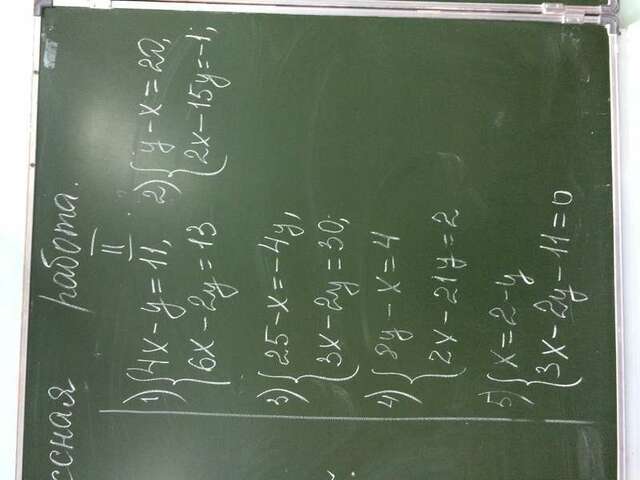 ссная работа.
II
1) { 4x - y = 11,
6x - 2y = 13
2) { y - x = 20,
2x - 15y = -1;
3) { 25 - x = -4y,
3x - 2y = 30;
4) { 8y - x = 4
2x - 21y = 2
5) { x = 2 - y
3x - 2y - 11 = 0